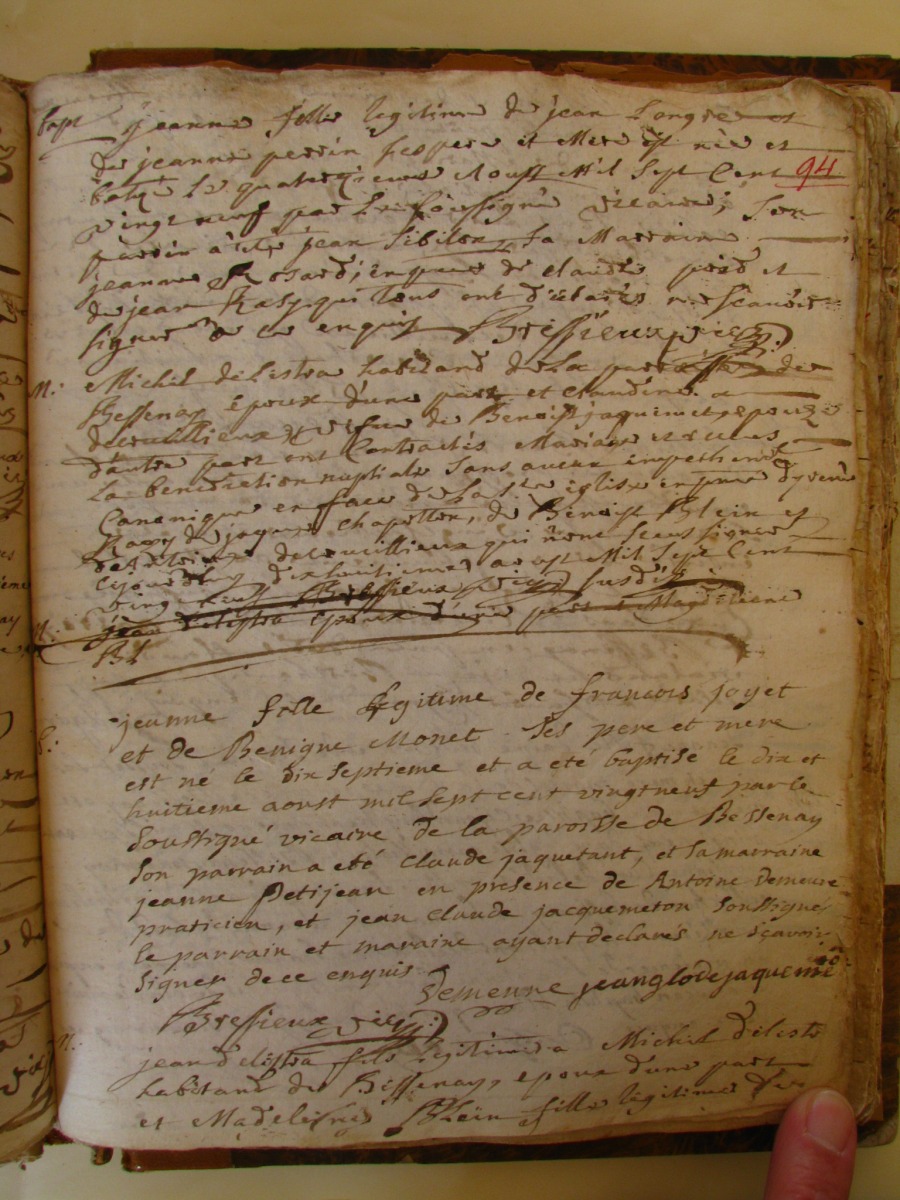 bapt jeanne fille legitime de jean Longre et
de jeanne perrin ses pere et Mere est née et
batisé Le quatorzieme Aoust Mil Sept Cent 94
vingt neuf par Le Soussigné vicaire, Son
parrin a été jean Sibilon, Sa Marraine
jeanne en pnce de claude et
de jean Razy qui tous ont déclarés ne scavoir
signer de ce enquis Bressieux vic
M: Michel delestra habitant de La parroisse de
Bessenay époux d'une part et Claudine
decruillieux vefve de Benoist jaquemet, epouze
d'autre part ont Contractés Mariage et receus
La benediction nuptiale Sans aucun impechement
Canonique en face de La Ste église en pnce d'yrené
Razy de jaques Chapellon, de Benoist Blein et
d'Antoine decruillieux qui n'ont sceu signer
cejourdhuy dixhuitieme aoust Mil Sept Cent
vingt neuf Bressieux vic susdit
jean delestra epoux d'une part et Magdeleine
Bl
B: jeanne fille legitime de francois joyet
et de Benigne Monet. Ses pere et mere
est né le dix septieme et a eté baptisé le dix et
huitieme aoust mil sept cent vingt neuf par le
Soussigné vicaire de la paroisse de Bessenay
Son parrain a eté Claude jaquetant, et sa marraine
jeanne Petijean en presence de Antoine Demeure
praticien, et jean claude jacquemeton soussignés
le parrain et maraine ayant declarés ne sçavoir
signer de ce enquis
Demeure jeanglodejaqueme
Bressieux vic
M. jean delestra fils legitime a Michel delestra
habitant de Bessenay, epoux d'une part
et Madeleine Blein fille legitime de